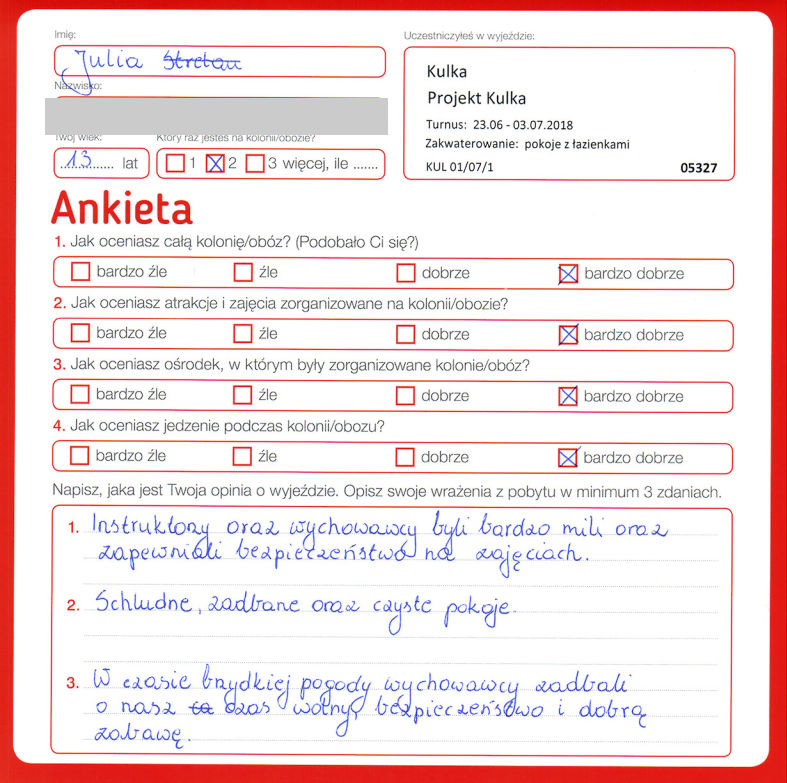 Imię:
Julia
Uczestniczyłeś w wyjeździe:
Kulka
Projekt Kulka
Turnus: 23.06 - 03.07.2018
Zakwaterowanie: pokoje z łazienkami
KUL 01/07/1 05327
Nazwisko:
Twój wiek: Który raz jesteś na kolonii/obozie?
13 lat 1 2 3 więcej, ile .......
Ankieta
1. Jak oceniasz całą kolonię/obóz? (Podobało Ci się?)
bardzo źle źle dobrze bardzo dobrze
2. Jak oceniasz atrakcje i zajęcia zorganizowane na kolonii/obozie?
bardzo źle źle dobrze bardzo dobrze
3. Jak oceniasz ośrodek, w którym były zorganizowane kolonie/obóz?
bardzo źle źle dobrze bardzo dobrze
4. Jak oceniasz jedzenie podczas kolonii/obozu?
bardzo źle źle dobrze bardzo dobrze
Napisz, jaka jest Twoja opinia o wyjeździe. Opisz swoje wrażenia z pobytu w minimum 3 zdaniach.
1. Instruktorzy oraz wychowawcy byli bardzo mili oraz
zapewniali bezpieczeństwo na zajęciach.
2. Schludne, zadbane oraz czyste pokoje.
3. W czasie brzydkiej pogody wychowawcy zadbali
o nasz czas wolny, bezpieczeństwo i dobrą
zabawę.